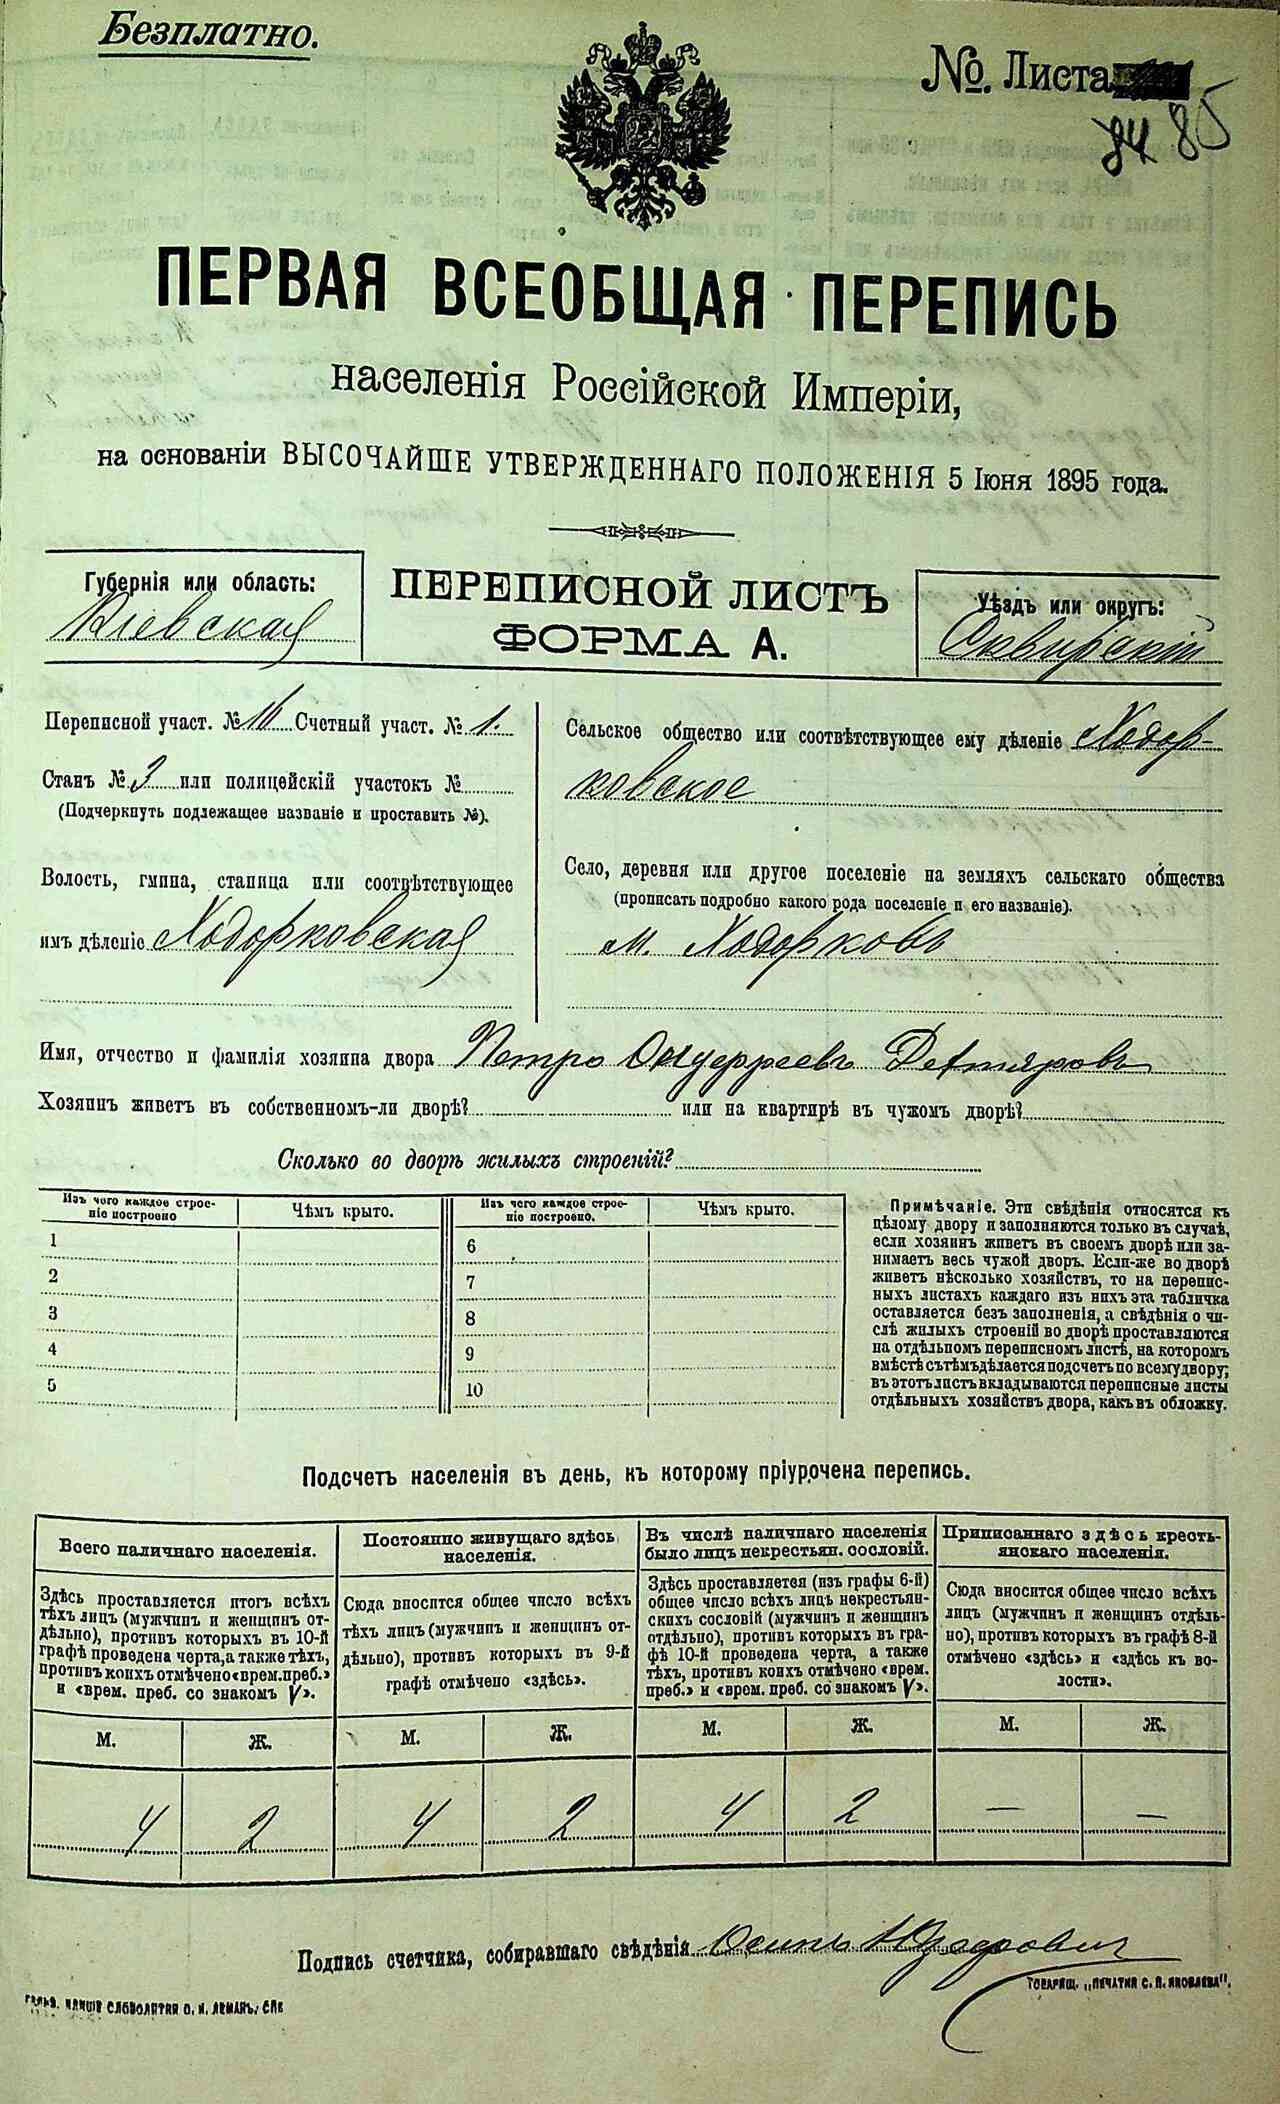 Безплатно.
№. Листа
84 85
ПЕРВАЯ ВСЕОБЩАЯ ПЕРЕПИСЬ
населенія Россійской Имперіи,
на основаніи ВЫСОЧАЙШЕ УТВЕРЖДЕННАГО ПОЛОЖЕНІЯ 5 Іюня 1895 года.
Губернія или область:
Кіевская
ПЕРЕПИСНОЙ ЛИСТЪ
ФОРМА А.
Уѣздъ или округъ:
Сквирскій
Переписной участ. № 16 Счетный участ. № 1.
Станъ № 3 или полицейскій участокъ №
(Подчеркнуть подлежащее названіе и проставить №).
Волость, гмина, станица или соотвѣтствующее
имъ дѣленіе Ходорковская
Сельское общество или соотвѣтствующее ему дѣленіе Ходор-
ковское
Село, деревня или другое поселеніе на земляхъ сельскаго общества
(прописать подробно какого рода поселеніе и его названіе).
м. Ходорковъ
Имя, отчество и фамилія хозяина двора Петро Дегтяровъ
Хозяинъ живетъ въ собственномъ-ли дворѣ? или на квартирѣ въ чужомъ дворѣ?
Сколько во дворѣ жилыхъ строеній?
Изъ чего каждое строе-
ніе построено
Чѣмъ крыто.
Изъ чего каждое строе-
ніе построено.
Чѣмъ крыто.
1
2
3
4
5
6
7
8
9
10
Примѣчаніе. Эти свѣдѣнія относятся къ
цѣлому двору и заполняются только въ случаѣ,
если хозяинъ живетъ въ своемъ дворѣ или за-
нимаетъ весь чужой дворъ. Если-же во дворѣ
живетъ нѣсколько хозяйствъ, то на перепис-
ныхъ листахъ каждаго изъ нихъ эта табличка
оставляется безъ заполненія, а свѣдѣнія о чи-
слѣ жилыхъ строеній во дворѣ проставляются
на отдѣльномъ переписномъ листѣ, на которомъ
вмѣстѣ съ тѣмъ дѣлается подсчетъ по всему двору;
въ этотъ листъ вкладываются переписные листы
отдѣльныхъ хозяйствъ двора, какъ въ обложку.
Подсчетъ населенія въ день, къ которому пріурочена перепись.
Всего наличнаго населенія.
Здѣсь проставляется итогъ всѣхъ
тѣхъ лицъ (мужчинъ и женщинъ от-
дѣльно), противъ которыхъ въ 10-й
графѣ проведена черта, а также тѣхъ,
противъ коихъ отмѣчено «врем. преб.»
и «врем. преб. со знакомъ V».
Постоянно живущаго здѣсь
населенія.
Сюда вносится общее число всѣхъ
тѣхъ лицъ (мужчинъ и женщинъ от-
дѣльно), противъ которыхъ въ 9-й
графѣ отмѣчено «здѣсь».
Въ числѣ наличнаго населенія
было лицъ некрестьян. сословій.
Здѣсь проставляется (изъ графы 6-й)
общее число всѣхъ лицъ некрестьян-
скихъ сословій (мужчинъ и женщинъ
отдѣльно), противъ которыхъ въ гра-
фѣ 10-й проведена черта, а также
тѣхъ, противъ коихъ отмѣчено «врем.
преб.» и «врем. преб. со знакомъ V».
Приписаннаго здѣсь кресть-
янскаго населенія.
Сюда вносится общее число всѣхъ
лицъ (мужчинъ и женщинъ отдѣль-
но), противъ которыхъ въ графѣ 8-й
отмѣчено «здѣсь» и «здѣсь къ во-
лости».
М. Ж. М. Ж. М. Ж. М. Ж.
4 2 4 2 4 2 — —
Подпись счетчика, собиравшаго свѣдѣнія Осипъ
Товарищ. „Печатня С. П. Яковлева“.
СЛОВОЛИТНЯ О. И. ЛЕМАНЪ, СПБ